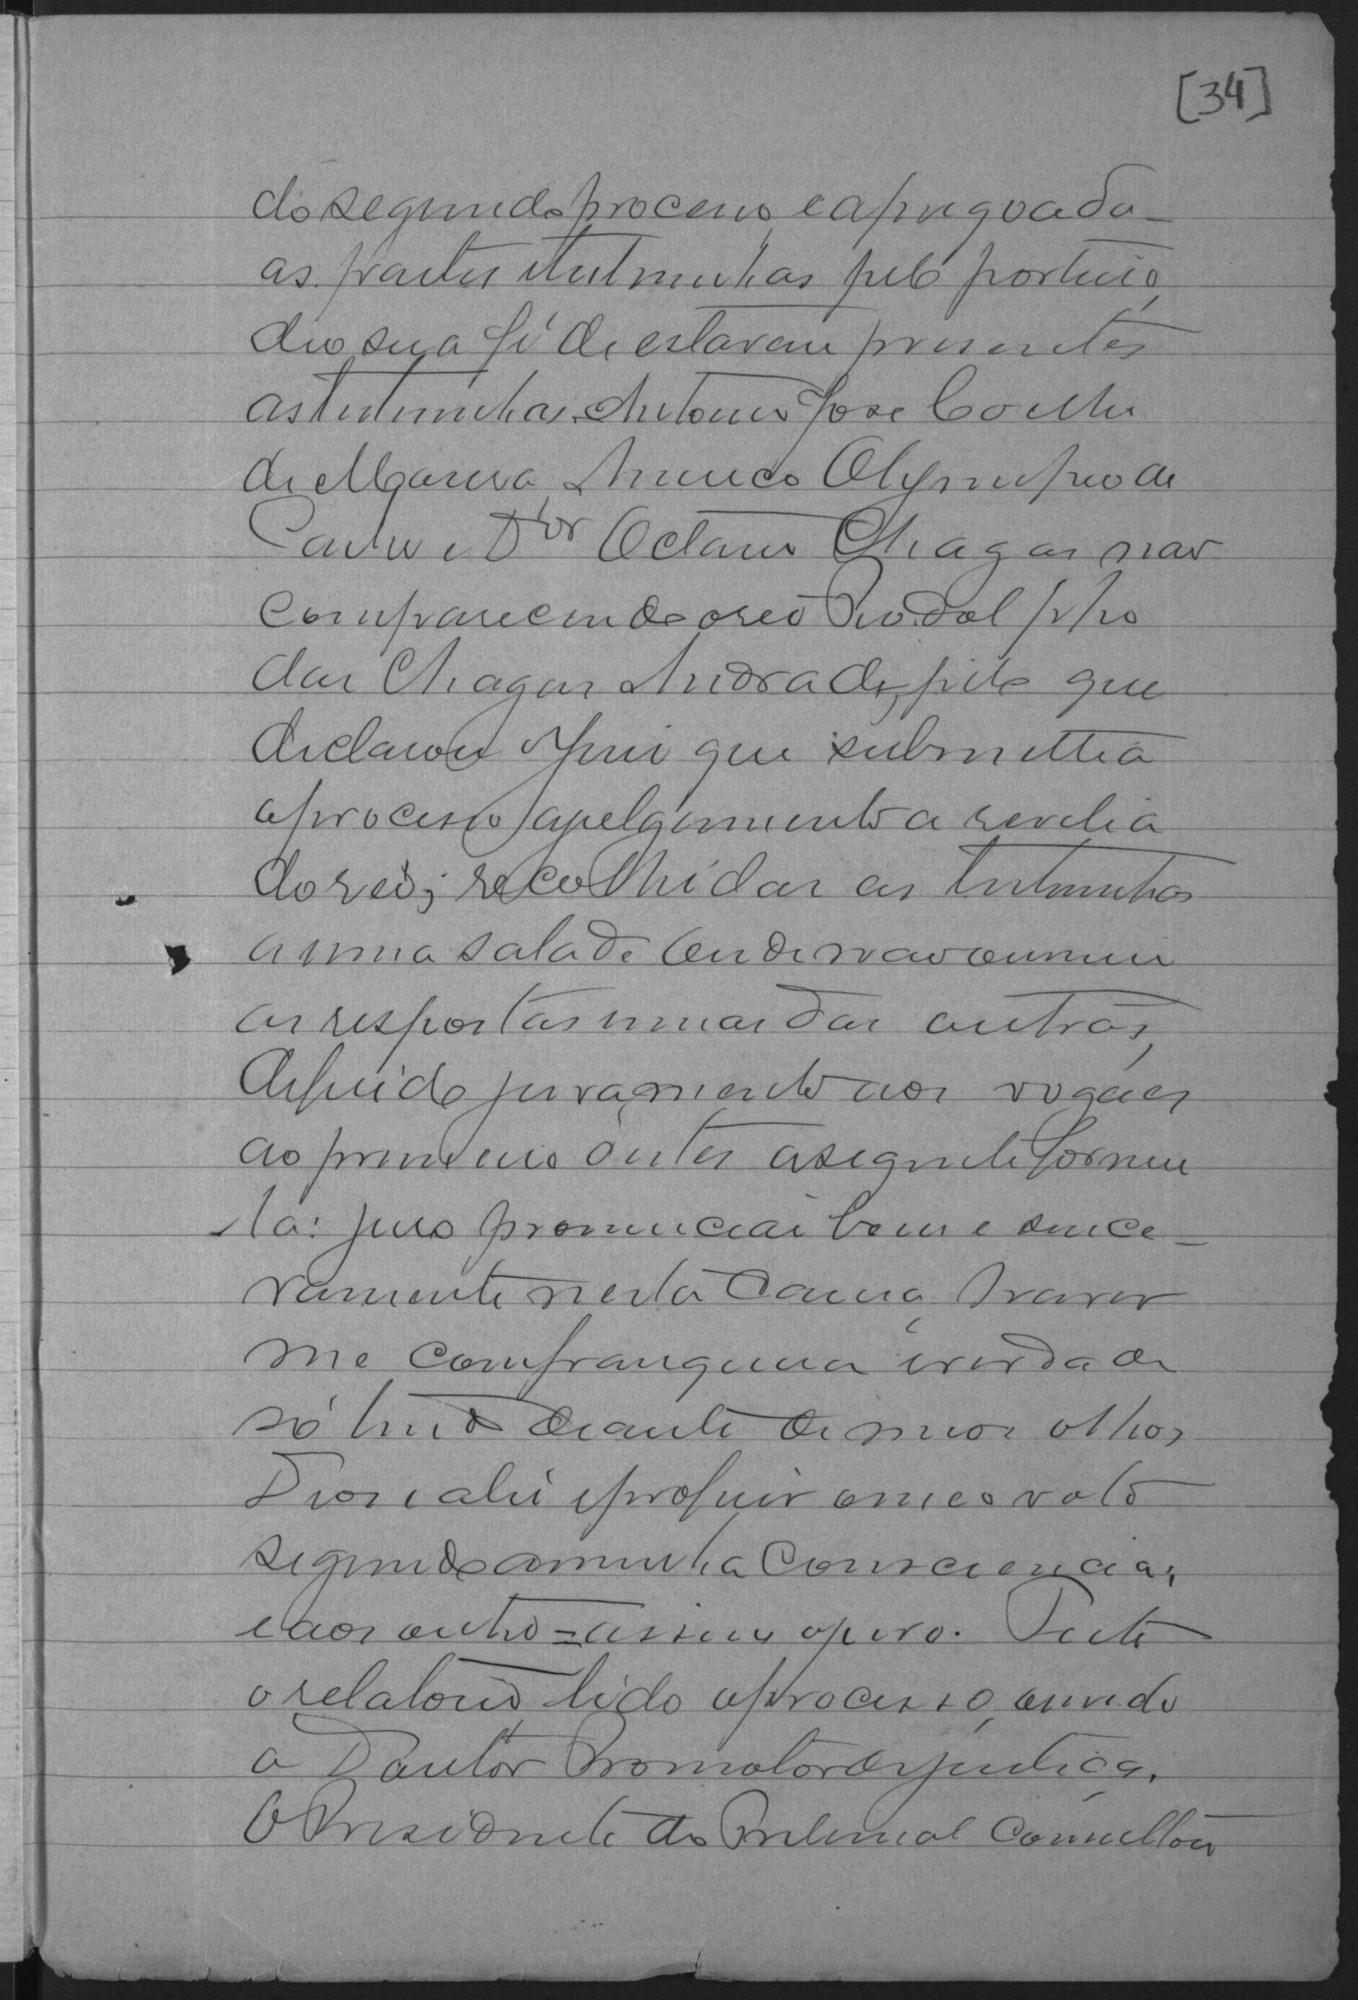 [34]
do segundo processo, e apregoada
as partes e testemunhas pelo porteiro,
deo sua fé de estarem presentes
as testemunhas Antonio José Coelho
de Moura, Americo Olympio de
Castro e Dor Octavio Chagas não
comparecendo o reo Rodolpho
das Chagas Andrade, pelo que
declarou o Juiz que submettia
o processo a julgamento a revelia
do reo; recolhidas as testemunhas
a uma sala de onde não ouvem
as respostas umas das outras,
deferido juramento aos vogaes
ao primeiro destes a seguinte formu
la: juro pronunciar bem e since-
ramente nesta causa, haver
me com franqueza e verdade
só tendo deante de meos olhos
Deos e a lei e proferir o meo voto
segundo a minha consciencia;
e aos outros = assim o juro. Feito
o relatorio, lido o processo, ouvido
o Doutor Promotor de justiça,
O Presidente do Tribunal consultou